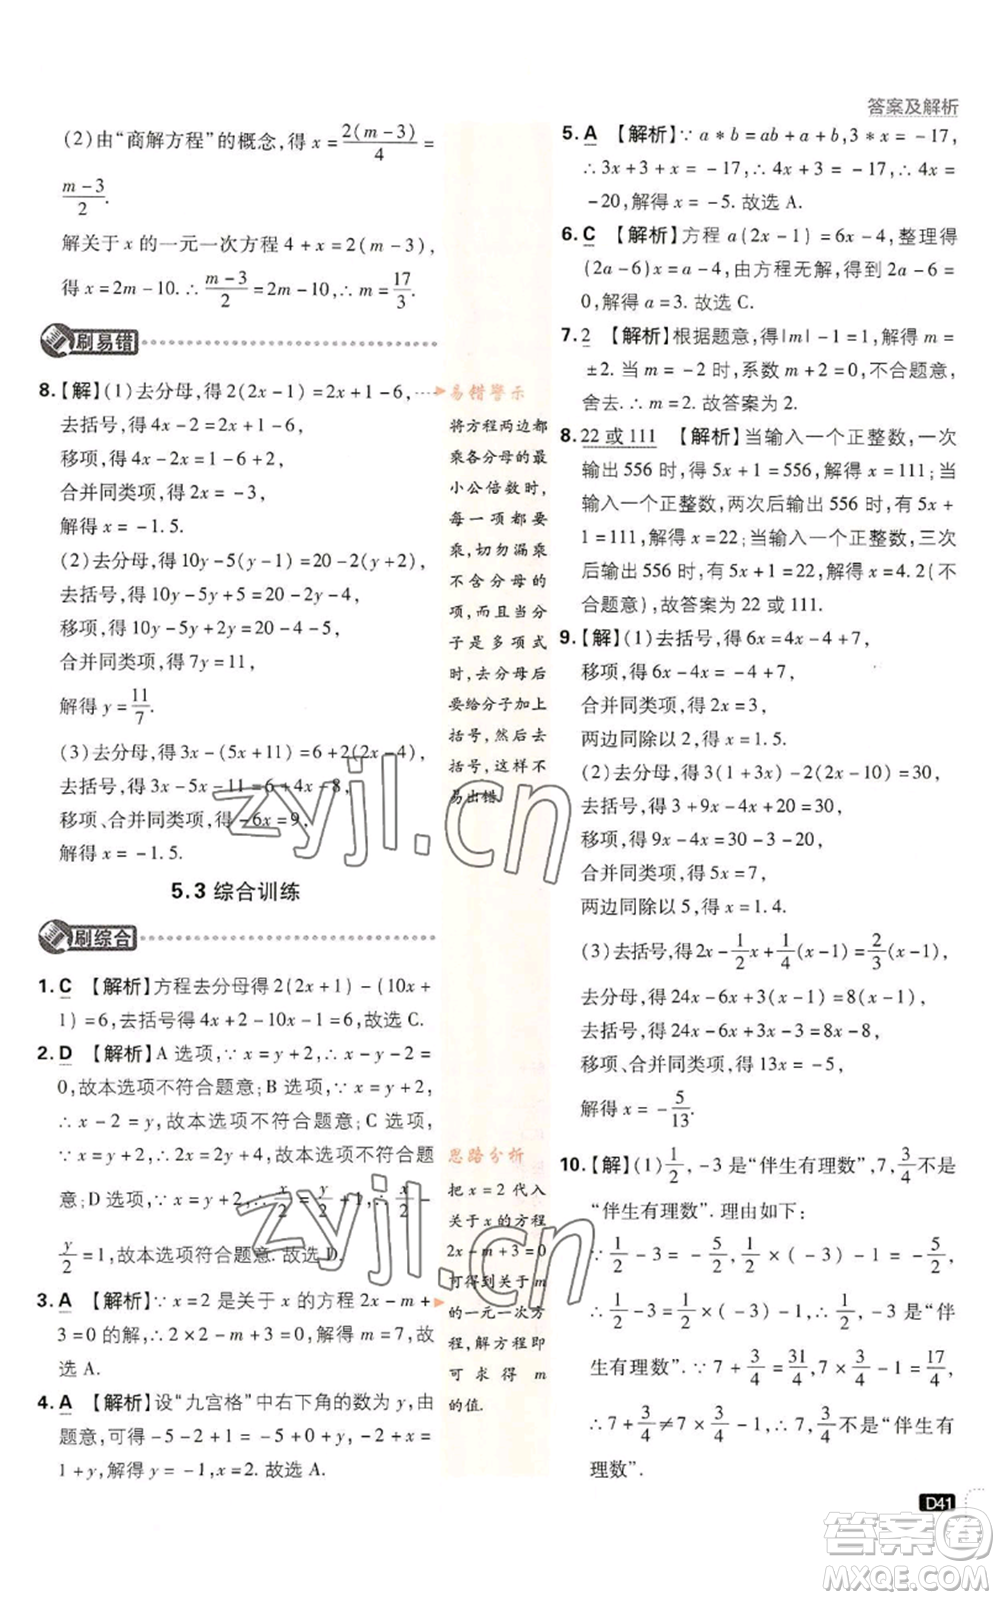 答案及解析
(2)由“商解方程”的概念,得 x = 2(m-3)/4 =
(m-3)/2.
解关于 x 的一元一次方程 4 + x = 2(m-3),
得 x = 2m - 10. ∴ (m-3)/2 = 2m - 10, ∴ m = 17/3.
刷易错
8. 【解】(1)去分母,得 2(2x-1) = 2x+1-6,
去括号,得 4x-2 = 2x+1-6,
移项,得 4x-2x = 1-6+2,
合并同类项,得 2x = -3,
解得 x = -1.5.
(2)去分母,得 10y-5(y-1) = 20-2(y+2),
去括号,得 10y-5y+5 = 20-2y-4,
移项,得 10y-5y+2y = 20-4-5,
合并同类项,得 7y = 11,
解得 y = 11/7.
(3)去分母,得 3x-(5x+11) = 6+2(2x-4),
去括号,得 3x-5x-11 = 6+4x-8,
移项、合并同类项,得 -6x = 9,
解得 x = -1.5.
5.3 综合训练
刷综合
1. C 【解析】方程去分母得 2(2x+1)-(10x+
1) = 6,去括号得 4x+2-10x-1 = 6,故选 C.
2. D 【解析】A 选项,∵ x = y+2,∴ x-y-2 =
0,故本选项不符合题意;B 选项,∵ x = y+2,
∴ x-2 = y,故本选项不符合题意;C 选项,
∵ x = y+2,∴ x-y = 2,故本选项不符合题
意;D 选项,∵ x = y+2,∴ x/2 = y/2 + 2/2,∴ x/2 -
y/2 = 1,故本选项符合题意.故选 D.
3. A 【解析】∵ x = 2 是关于 x 的方程 2x-m+
3 = 0 的解,∴ 2×2-m+3 = 0,解得 m = 7,故
选 A.
4. A 【解析】设“九宫格”中右下角的数为 y,由
题意,可得 -5-2+y = x-2+y = -5+
1+y,解得 y = -1,x = -1.故选 A.
易错警示
将方程两边都
乘各分母的最
小公倍数时,
每一项都要
乘,切勿漏乘
不含分母的
项,而且当分
子是多项式
时,去分母后
要给分子加上
括号,然后去
括号,这样不
易出错.
思路分析
把 x = 2 代入
关于 x 的方程
2x-m+3=0
可得到关于 m
的一元一次方
程,解方程即
可求得 m
的值.
5. A 【解析】∵ a*b = ab+a+b,3*x = -17,
∴ 3x+3+x = -17,∴ 4x+3 = -17,∴ 4x =
-20,解得 x = -5.故选 A.
6. C 【解析】方程 a(2x-1) = 6x-4,整理得
(2a-6)x = a-4,由方程无解,得 2a-6 =
0,解得 a = 3.故选 C.
7. 2 【解析】根据题意,得 |m|-1 = 1,解得 m =
±2. 当 m = -2 时,系数 m+2 = 0,不合题意,
舍去.∴ m = 2.故答案为 2.
8. 22 或 111 【解析】当输入一个正整数,一次
输出 556 时,得 5x+1 = 556,解得 x = 111;当
输入一个正整数,两次后输出 556 时,有 5x+
1 = 111,解得 x = 22;当输入一个正整数,三次
后输出 556 时,有 5x+1 = 22,解得 x = 4.2(不
合题意),故答案为 22 或 111.
9. 【解】(1)去括号,得 6x = 4x-4+7,
移项,得 6x-4x = -4+7,
合并同类项,得 2x = 3,
两边同除以 2,得 x = 1.5.
(2)去分母,得 3(1+3x)-2(2x) = 30,
去括号,得 3+9x-4x = 30,
移项,得 9x-4x = 30-3,
合并同类项,得 5x = 
两边同除以 5,得 x = 1.4.
(3)去括号,得 2x - 1/2 x + 1/4 (x-1) = 2/3 (x-1),
去分母,得 24x-6x+3(x-1) = 8(x-1),
去括号,得 24x-6x+3x-3 = 8x-8,
移项、合并同类项,得 13x = -5,
解得 x = -5/13.
10. 【解】(1) 1/2, -3 是“伴生有理数”,7, 3/4 不是
“伴生有理数”.理由如下:
∵ 1/2 - 3 = -5/2, 1/2 × (-3) - 1 = -5/2,
∴ 1/2 - 3 = 1/2 × (-3) - 1,∴ 1/2, -3 是“伴
生有理数”.∵ 7 + 3/4 = 31/4, 7 × 3/4 - 1 = 17/4,
∴ 7 + 3/4 ≠ 7 × 3/4 - 1,∴ 7, 3/4 不是“伴生有
理数”.
D41
zyjl.cn
zyjl.cn
答案圈
MXQE.COM